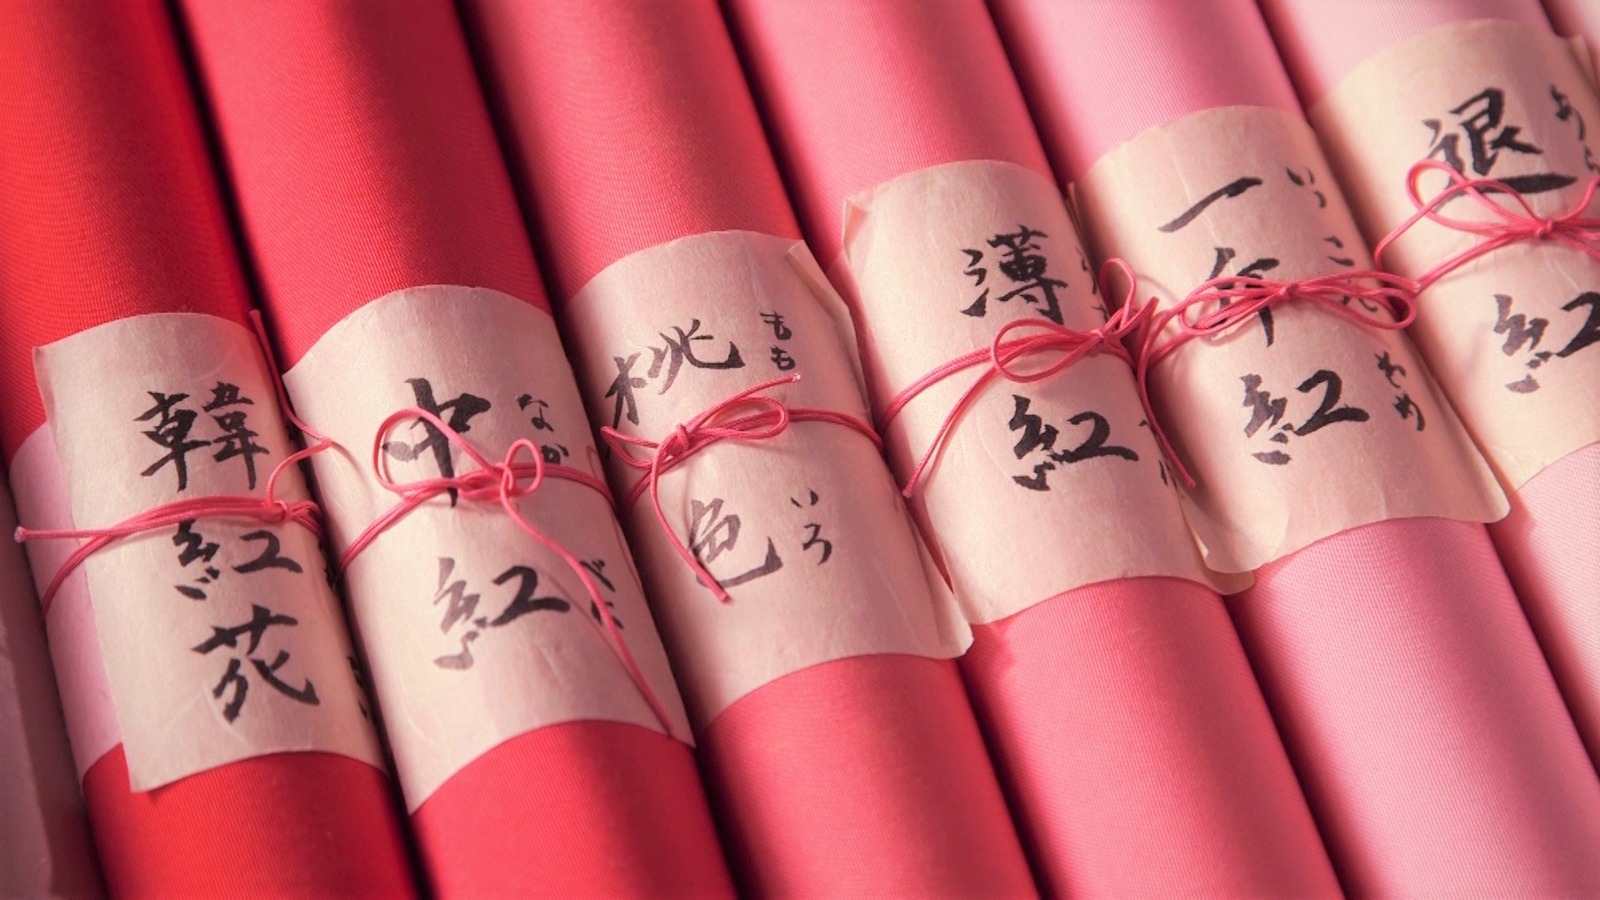 韓紅花
中紅
なか
べに
桃色
もも
いろ
薄紅
一斤紅
いっこん
ぞめ
退紅
あら